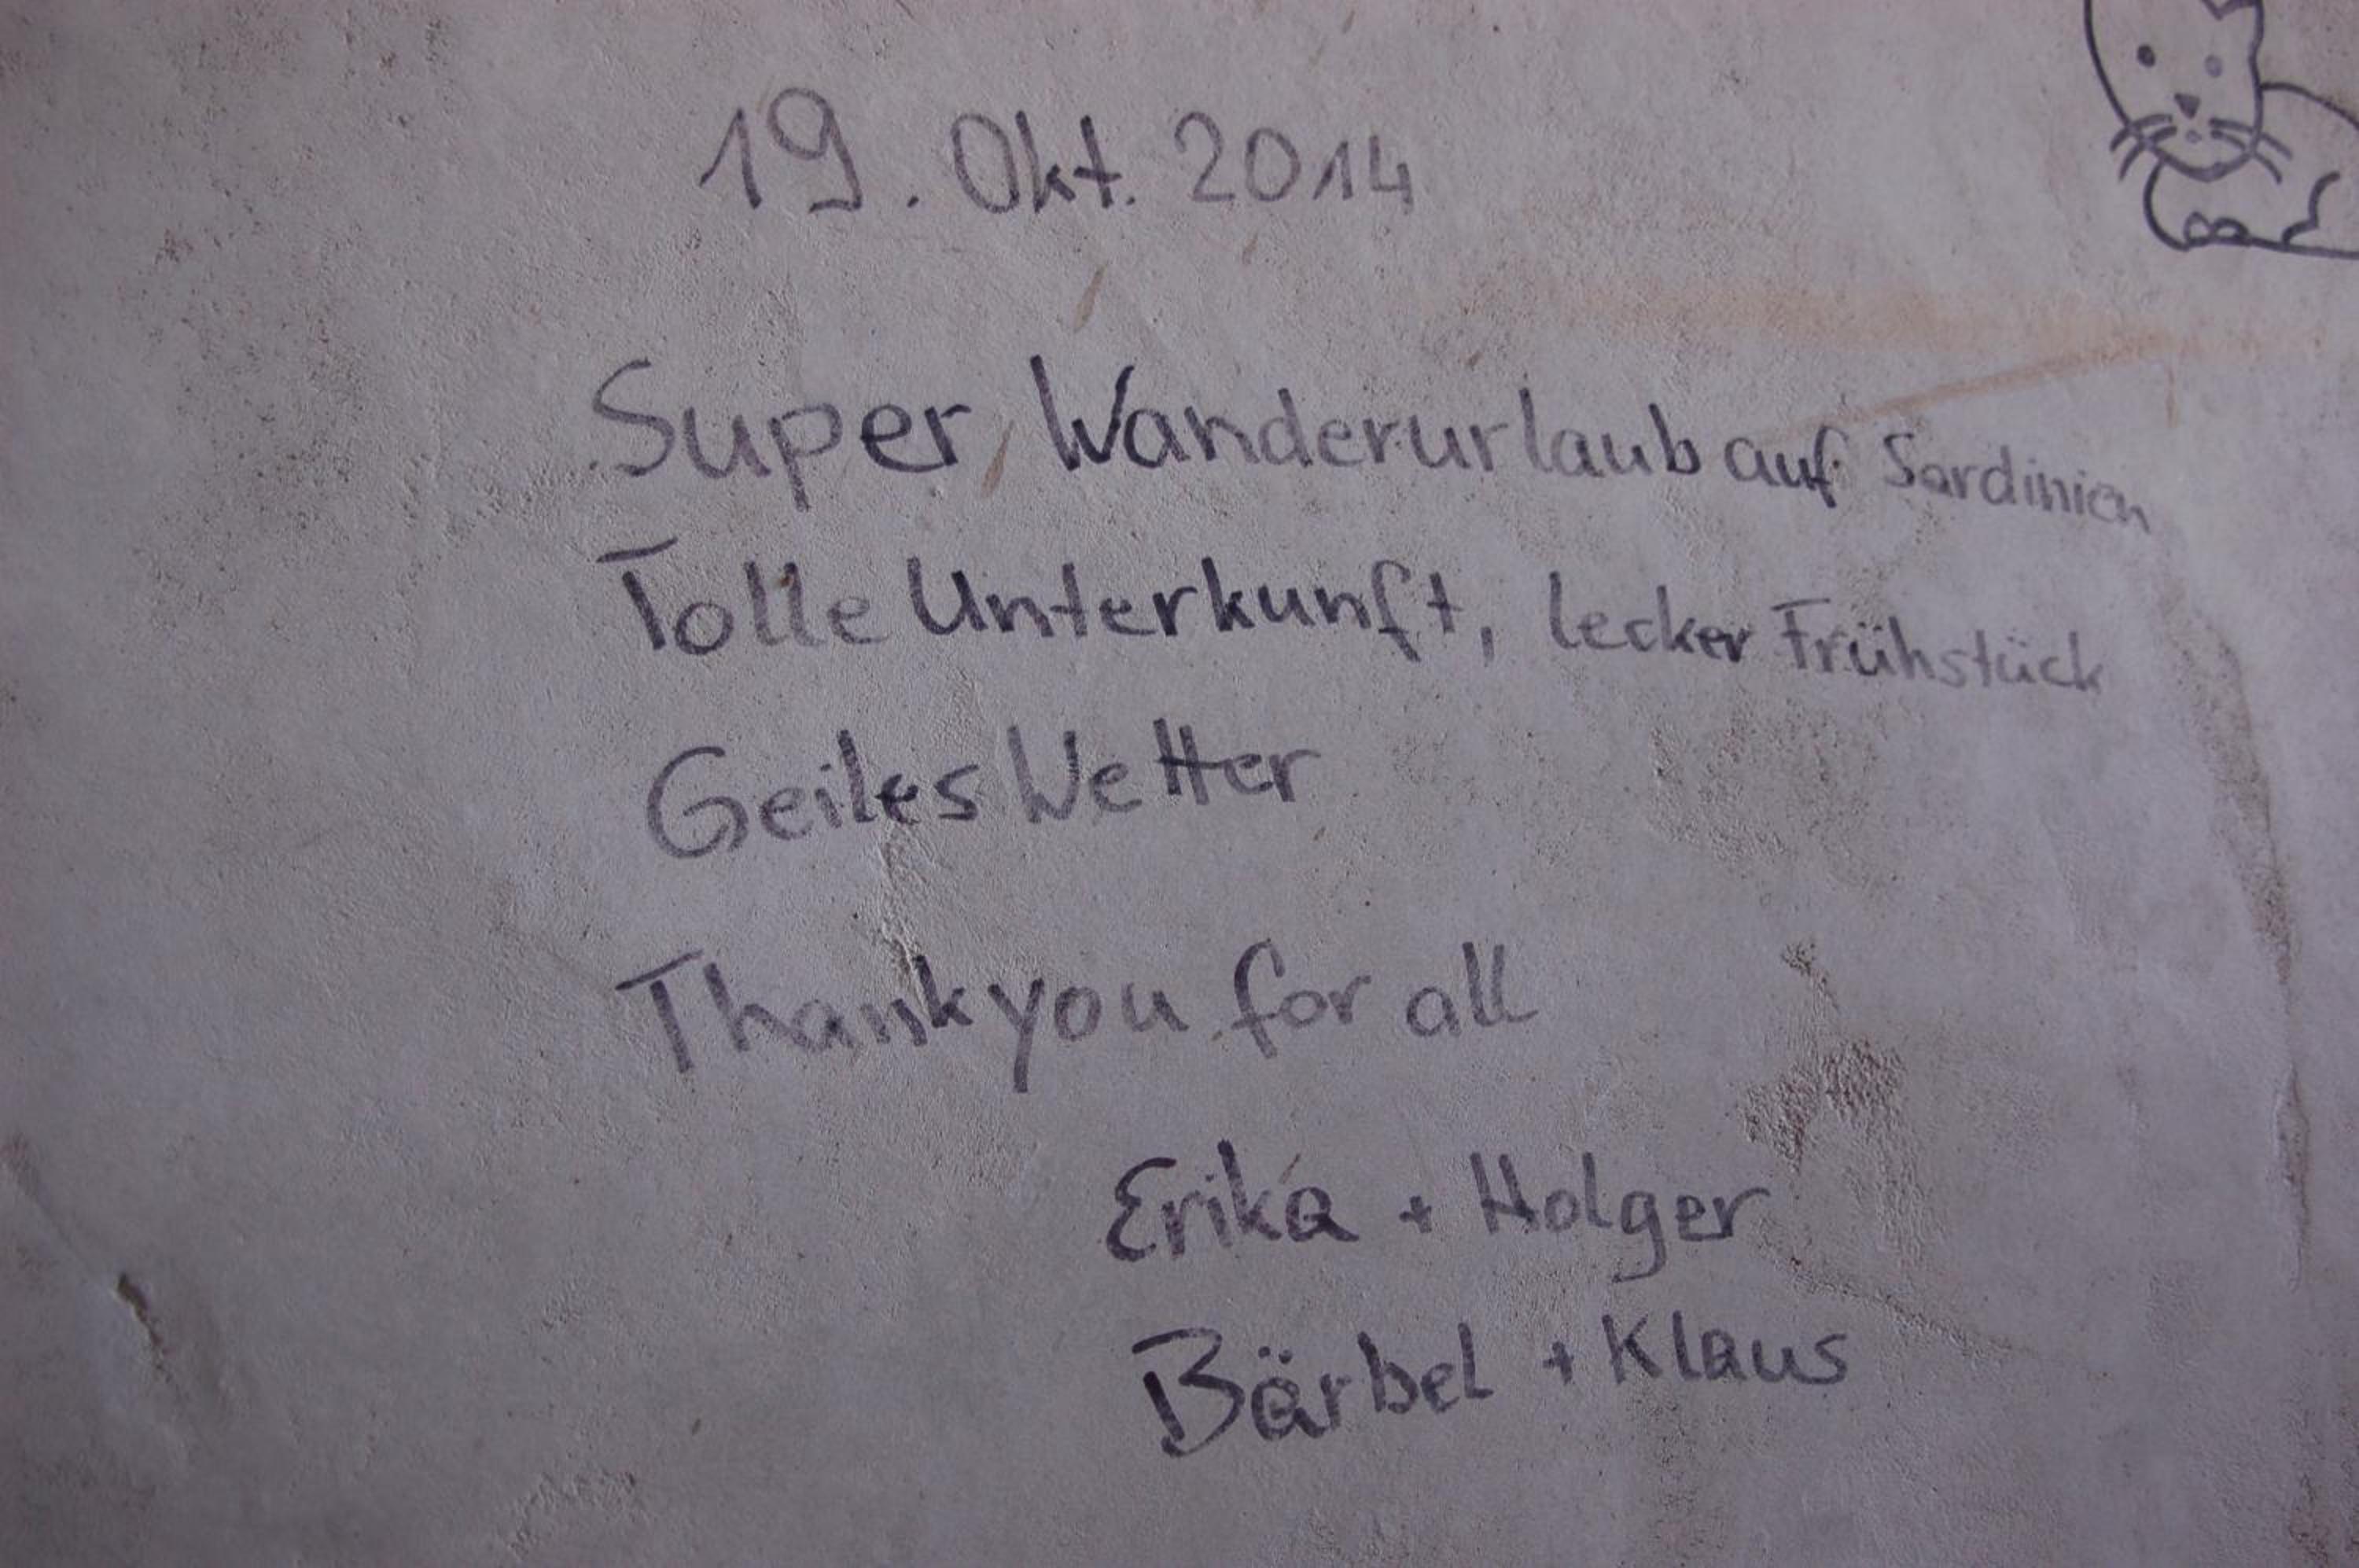 19. Okt. 2014
Super Wanderurlaub auf Sardinien
Tolle Unterkunft, lecker Frühstück
Geiles Wetter
Thank you for all
Erika + Holger
Bärbel + Klaus